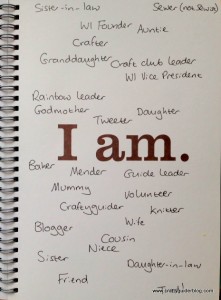 Sister-in-law
Sewer (not sewer)
WI Founder
Auntie
Crafter
Granddaughter
Craft club leader
WI Vice President
Rainbow leader
Godmother
Daughter
Tweeter
I am.
Baker
Mender
Guide leader
Mummy
Volunteer
Craftyguider
Knitter
Blogger
Wife
Cousin
Niece
Sister
Daughter-in-law
Friend